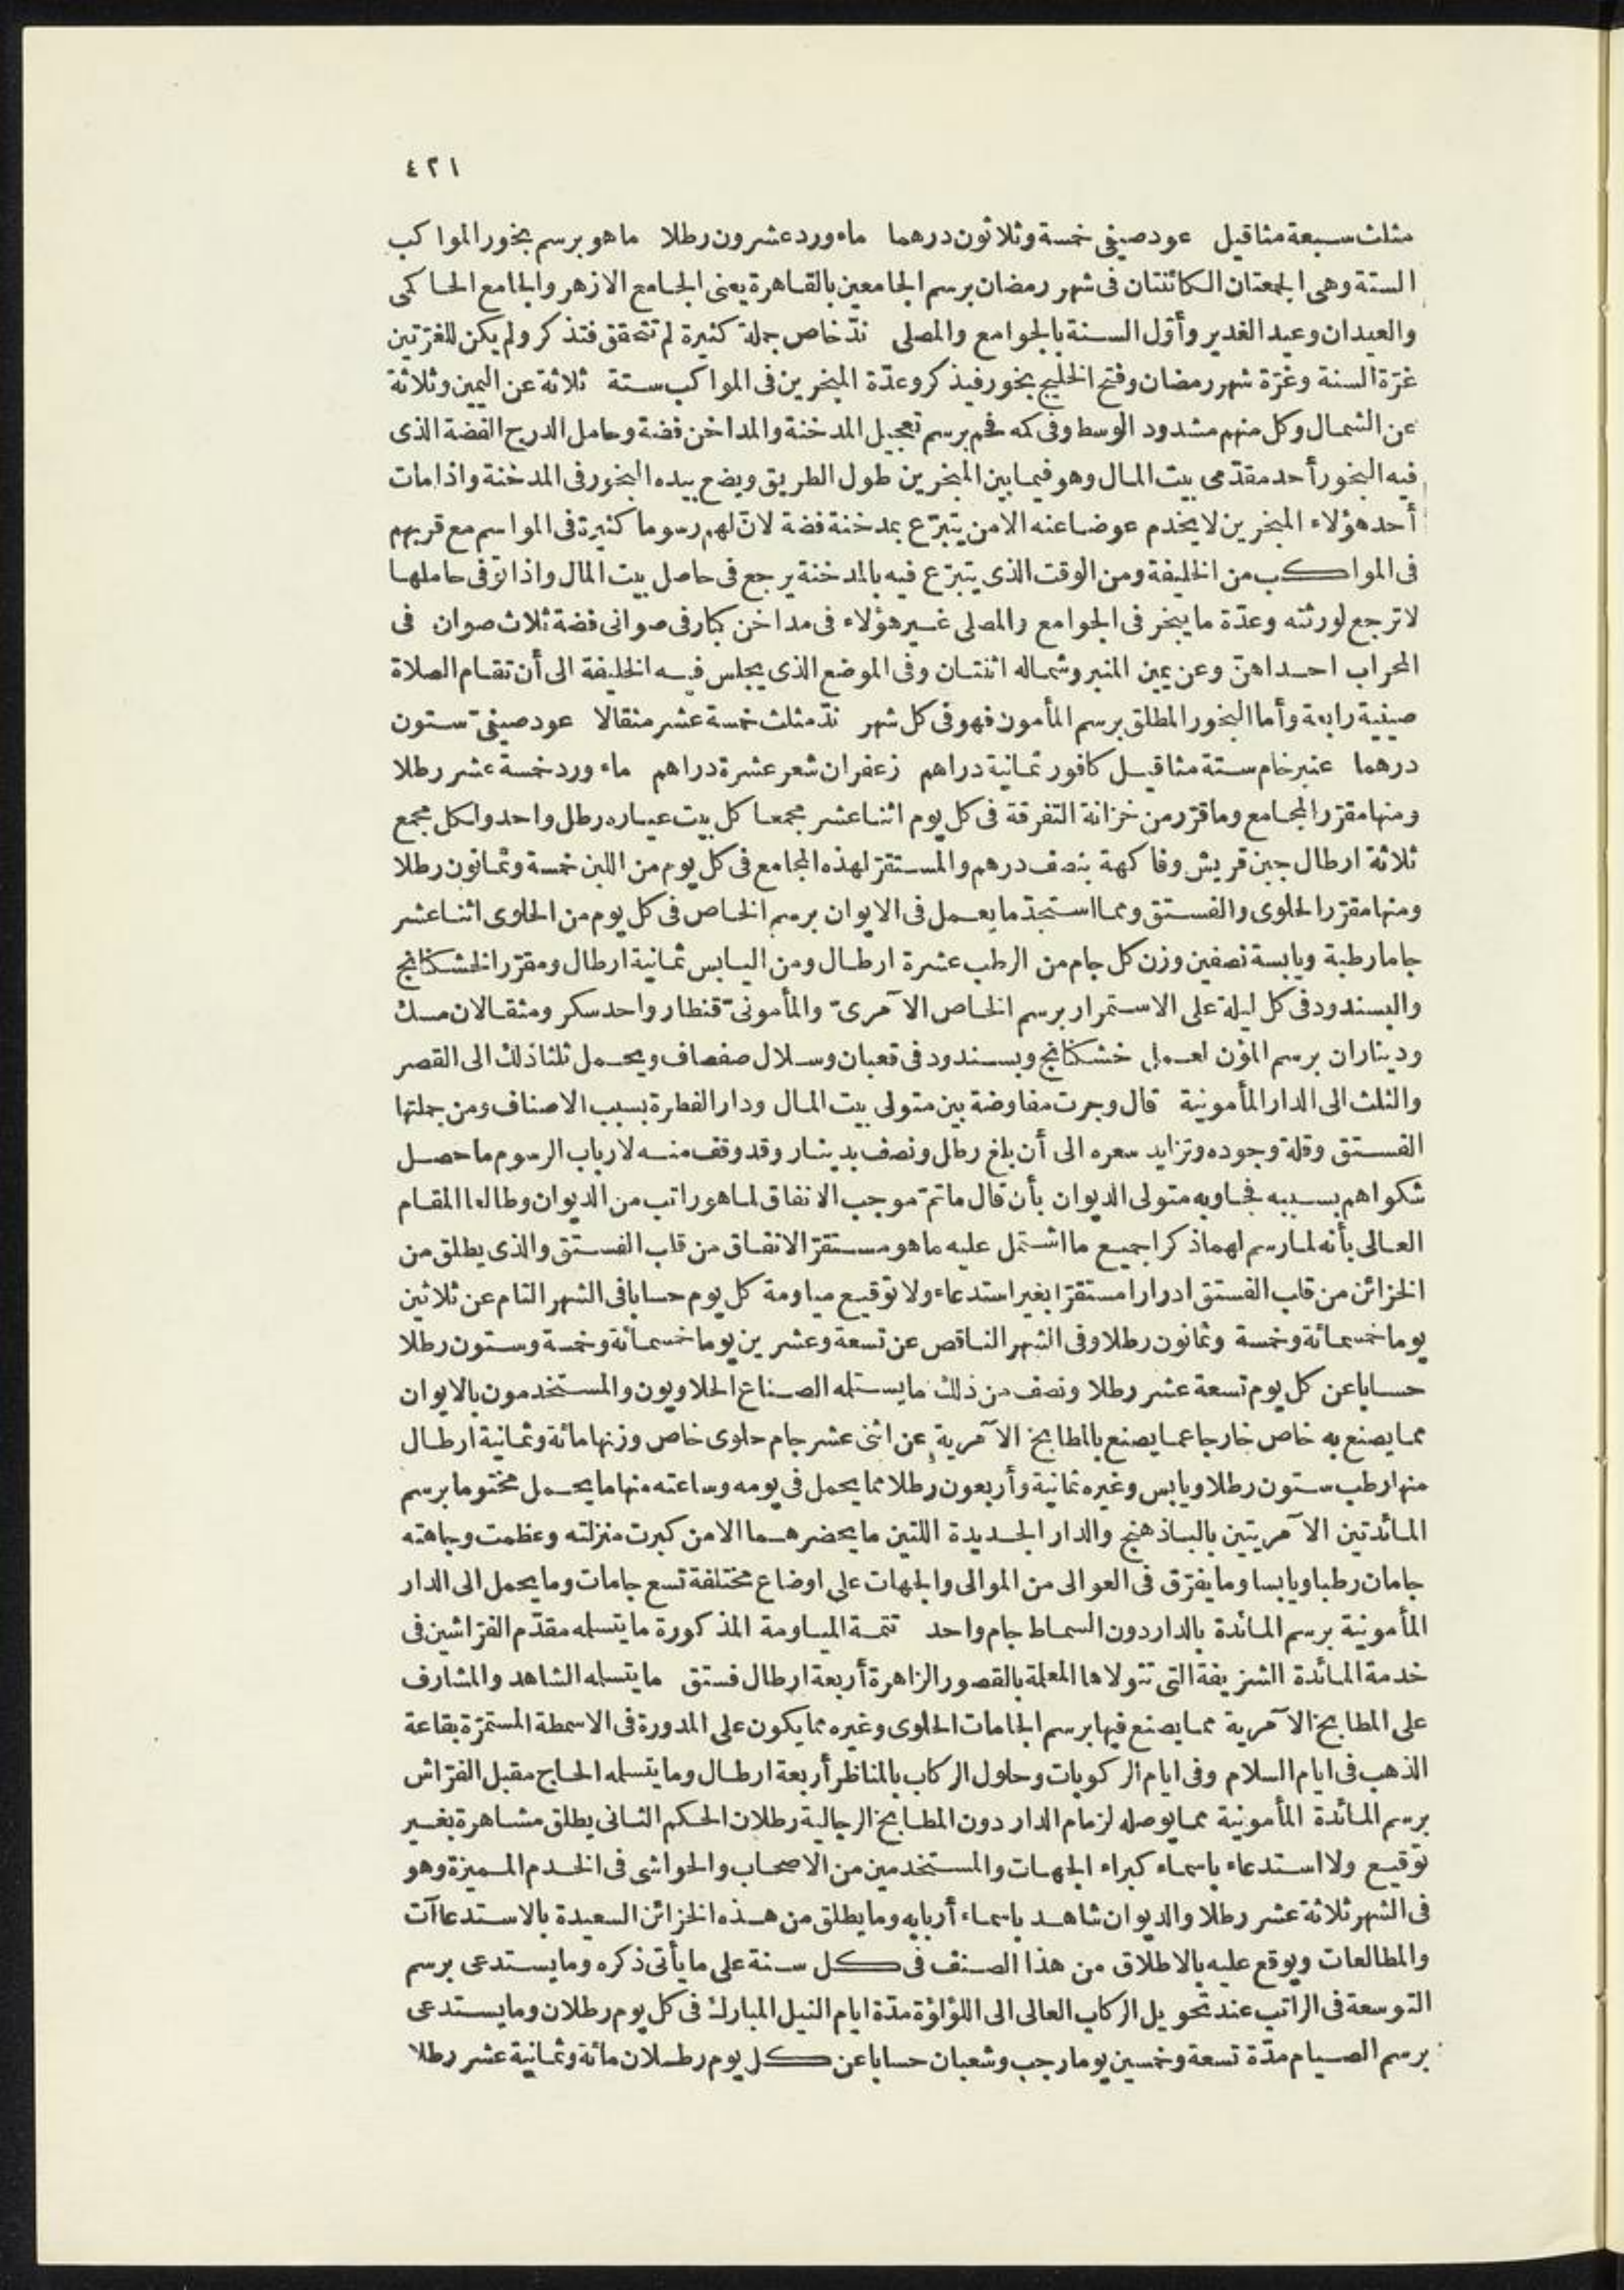 ٤٢١
مثلث سبعة مثاقيل عود صيفى خمسة وثلاثون درهما ماء ورد عشرون رطلا ما هو برسم بخور المواكب
الستة وهى الجمعتان الكائنتان فى شهر رمضان برسم الجامعين بالقاهرة يعنى الجامع الازهر والجامع الحاكمى
والعيدان وعيد الغدير وأوّل السنة بالجوامع والمصلى ندّ خاص جملة كثيرة لم تتحقق فتذكر ولم يكن للغرّتين
غرّة السنة وغرّة شهر رمضان وفتح الخليج بخور فيذكر وعدّة المبخرين فى المواكب ستة ثلاثة عن اليمين وثلاثة
عن الشمال وكل منهم مشدود الوسط وفى كمه فحم برسم تعجيل المدخنة والمداخن فضة وحامل الدرج الفضة الذى
فيه البخور أحد مقدّمى بيت المال وهو فيما بين المبخرين طول الطريق ويضع بيده البخور فى المدخنة واذا مات
أحد هؤلاء المبخرين لا يخدم عوضا عنه الا من يتبرّع بمدخنة فضة لانّ لهم رسوما كثيرة فى المواسم مع قربهم
فى المواكب من الخليفة ومن الوقت الذى يتبرّع فيه بالمدخنة يرجع فى حاصل بيت المال واذا توفى حاملها
لا ترجع لورثته وعدّة ما يبخر فى الجوامع والمصلى غير هؤلاء فى مداخن كبار فى صوانى فضة ثلاث صوان فى
المحراب احداهنّ وعن يمين المنبر وشماله اثنتان وفى الموضع الذى يجلس فيه الخليفة الى أن تقام الصلاة
صينية رابعة وأما البخور المطلق برسم المأمون فهو فى كل شهر ندّ مثلث خمسة عشر مثقالا عود صيفىّ ستون
درهما عنبر خام ستة مثاقيل كافور ثمانية دراهم زعفران شعر عشرة دراهم ماء ورد خمسة عشر رطلا
ومنها مقرّر المجامع وما قرّر من خزانة التفرقة فى كل يوم اثنا عشر مجمعا كل بيت عياره رطل واحد ولكل مجمع
ثلاثة ارطال جبن قريش وفاكهة بنصف درهم والمستقرّ لهذه المجامع فى كل يوم من اللبن خمسة وثمانون رطلا
ومنها مقرّر الحلوى والفستق ومما استجدّ ما يعمل فى الايوان برسم الخاص فى كل يوم من الحلوى اثنا عشر
جاما رطبة ويابسة نصفين وزن كل جام من الرطب عشرة ارطال ومن اليابس ثمانية ارطال ومقرّر الخشكنانج
والبسندود فى كل ليلة على الاستمرار برسم الخاص الآمرىّ والمأمونىّ قنطار واحد سكر ومثقالان مسك
وديناران برسم المؤن لعمل خشكنانج وبسندود فى قعبان وسلال صفصاف ويحمل ثلثا ذلك الى القصر
والثلث الى الدار المأمونية قال وجرت مفاوضة بين متولى بيت المال ودار الفطرة بسبب الاصناف ومن جملتها
الفستق وقلة وجوده وتزايد سعره الى أن بلغ رطل ونصف بدينار وقد وقف منه لارباب الرسوم ما حصل
شكواهم بسببه فجاوبه متولى الديوان بأن قال ما تمّ موجب الانفاق لما هو راتب من الديوان وطالعا المقام
العالى بأنه لما رسم لهما ذكرا جميع ما اشتمل عليه ما هو مستقرّ الانفاق من قلب الفستق والذى يطلق من
الخزائن من قلب الفستق ادرارا مستقرّا بغير استدعاء ولا توقيع مياومة كل يوم حسابا فى الشهر التام عن ثلاثين
يوما خمسمائة وخمسة وثمانون رطلا وفى الشهر الناقص عن تسعة وعشرين يوما خمسمائة وخمسة وستون رطلا
حسابا عن كل يوم تسعة عشر رطلا ونصف من ذلك ما يستلمه الصناع الحلاويون والمستخدمون بالايوان
مما يصنع به خاص خارجا عما يصنع بالمطابخ الآمرية عن اثنى عشر جام حلوى خاص وزنها مائة وثمانية ارطال
منها رطب ستون رطلا ويابس وغيره ثمانية وأربعون رطلا مما يحمل فى يومه وساعته منها ما يحمل مختوما برسم
المائدتين الآمريتين بالباذهنج والدار الجديدة اللتين ما يحضرهما الا من كبرت منزلته وعظمت وجاهته
جامان رطبا ويابسا وما يفرّق فى العوالى من الموالى والجهات على اوضاع مختلفة تسع جامات وما يحمل الى الدار
المأمونية برسم المائدة بالدار دون السماط جام واحد تتمة المياومة المذكورة ما يتسلمه مقدّم الفرّاشين فى
خدمة المائدة الشريفة التى تتولاها المعلمة بالقصور الزاهرة أربعة ارطال فستق ما يتسلمه الشاهد والمشارف
على المطابخ الآمرية مما يصنع فيها برسم الجامات الحلوى وغيره مما يكون على المدورة فى الاسمطة المستمرّة بقاعة
الذهب فى ايام السلام وفى ايام الركوبات وحلول الركاب بالمناظر أربعة ارطال وما يتسلمه الحاج مقبل الفرّاش
برسم المائدة المأمونية مما يوصله لزمام الدار دون المطابخ الرجالية رطلان الحكم الثانى يطلق مشاهرة بغير
توقيع ولا استدعاء باسماء كبراء الجهات والمستخدمين من الاصحاب والحواشى فى الخدم المميزة وهو
فى الشهر ثلاثة عشر رطلا والديوان شاهد باسماء أربابه وما يطلق من هذه الخزائن السعيدة بالاستدعاآت
والمطالعات ويوقع عليه بالاطلاق من هذا الصنف فى كل سنة على ما يأتى ذكره وما يستدعى برسم
التوسعة فى الراتب عند تحويل الركاب العالى الى اللؤلؤة مدّة ايام النيل المبارك فى كل يوم رطلان وما يستدعى
برسم الصيام مدّة تسعة وخمسين يوما رجب وشعبان حسابا عن كل يوم رطلان مائة وثمانية عشر رطلا